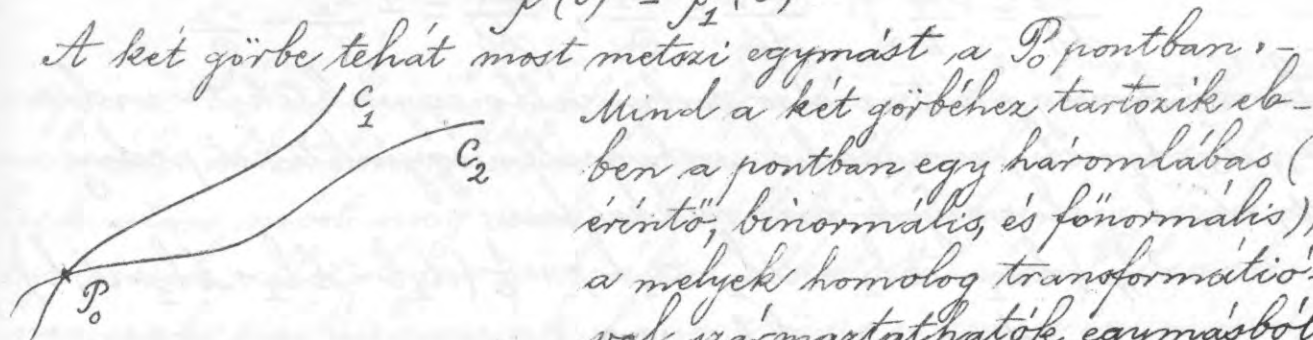 A két görbe tehát most metszi egymást a P₀ pontban. –
C₁
Mind a két görbéhez tartozik eb-
C₂
ben a pontban egy háromlábas (
érintő, binormális, és főnormális),
a melyek homolog transformátió-
P₀
val származtathatók egymásból